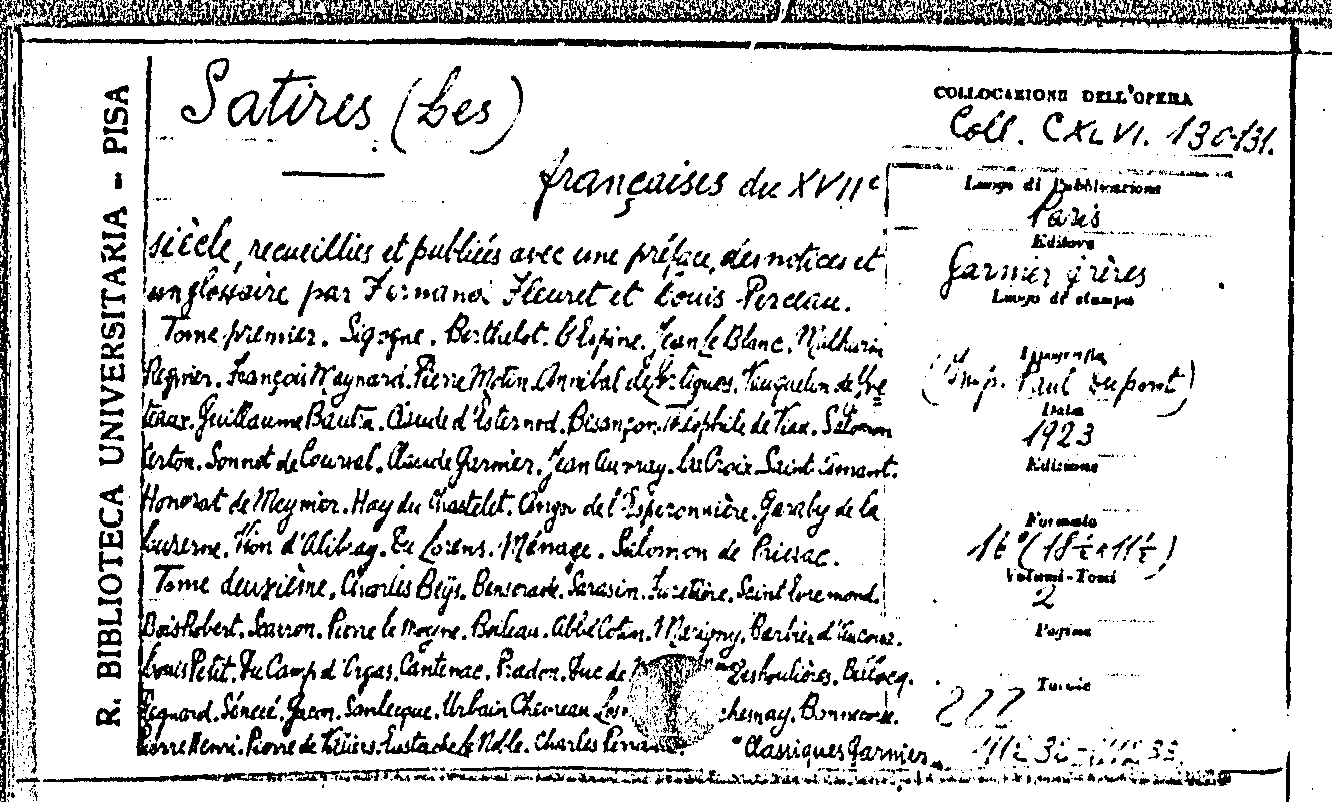 R. BIBLIOTECA UNIVERSITARIA - PISA
Satires (Les)
françaises du XVIIe
siècle, recueillies et publiées avec une préface, des notices et
un glossaire par Fernand Fleuret et Louis Perceau.
Tome premier. Sigogne. Berthelot. L'Espine. Jean Le Blanc. Mathurin
Regnier. François Maynard. Pierre Motin. Annibal de Vauquelin de Yve
teaux. Guillaume Bautru. Claude d'Esternod. Besançon. Théophile de Viau. Salomon
Certon. Sonnet de Courval. Claude Garnier. Jean Auvray. La Croix. Saint Amant.
Honorat de Meynier. Hay du Chastelet. Angot de l'Esperonnière. Garaby de la
Luzerne. Vion d'Alibray. Du Lorens. Ménage. Salomon de Priezac.
Tome deuxième. Charles Beÿs. Benserade. Sarasin. Furetière. Saint Evremond.
Bois Robert. Scarron. Pierre le Moyne. Boileau. Abbé Cotin. Marigny. Barbier d'Aucour.
Louis Petit. Du Camp d'Orgas. Cantenac. Pradon. Duc de Deshoulières. Bellocq.
Regnard. Sénecé. Gacon. Sanlecque. Urbain Chevreau. chesnay. Bonnecorse.
Pierre Henri. Pierre de Eustache Le Noble. Charles
"Classiques Garnier
COLLOCAZIONE DELL'OPERA
Coll. CXLVI. 130-131.
Luogo di Pubblicazione
Paris
Editore
Garnier frères
Luogo di stampa
Stamperia
(Imp. Paul Dupont)
Data
1923
Edizione
Formato
16° (18½x11½)
Volumi-Tomi
2
Pagine
Tavole